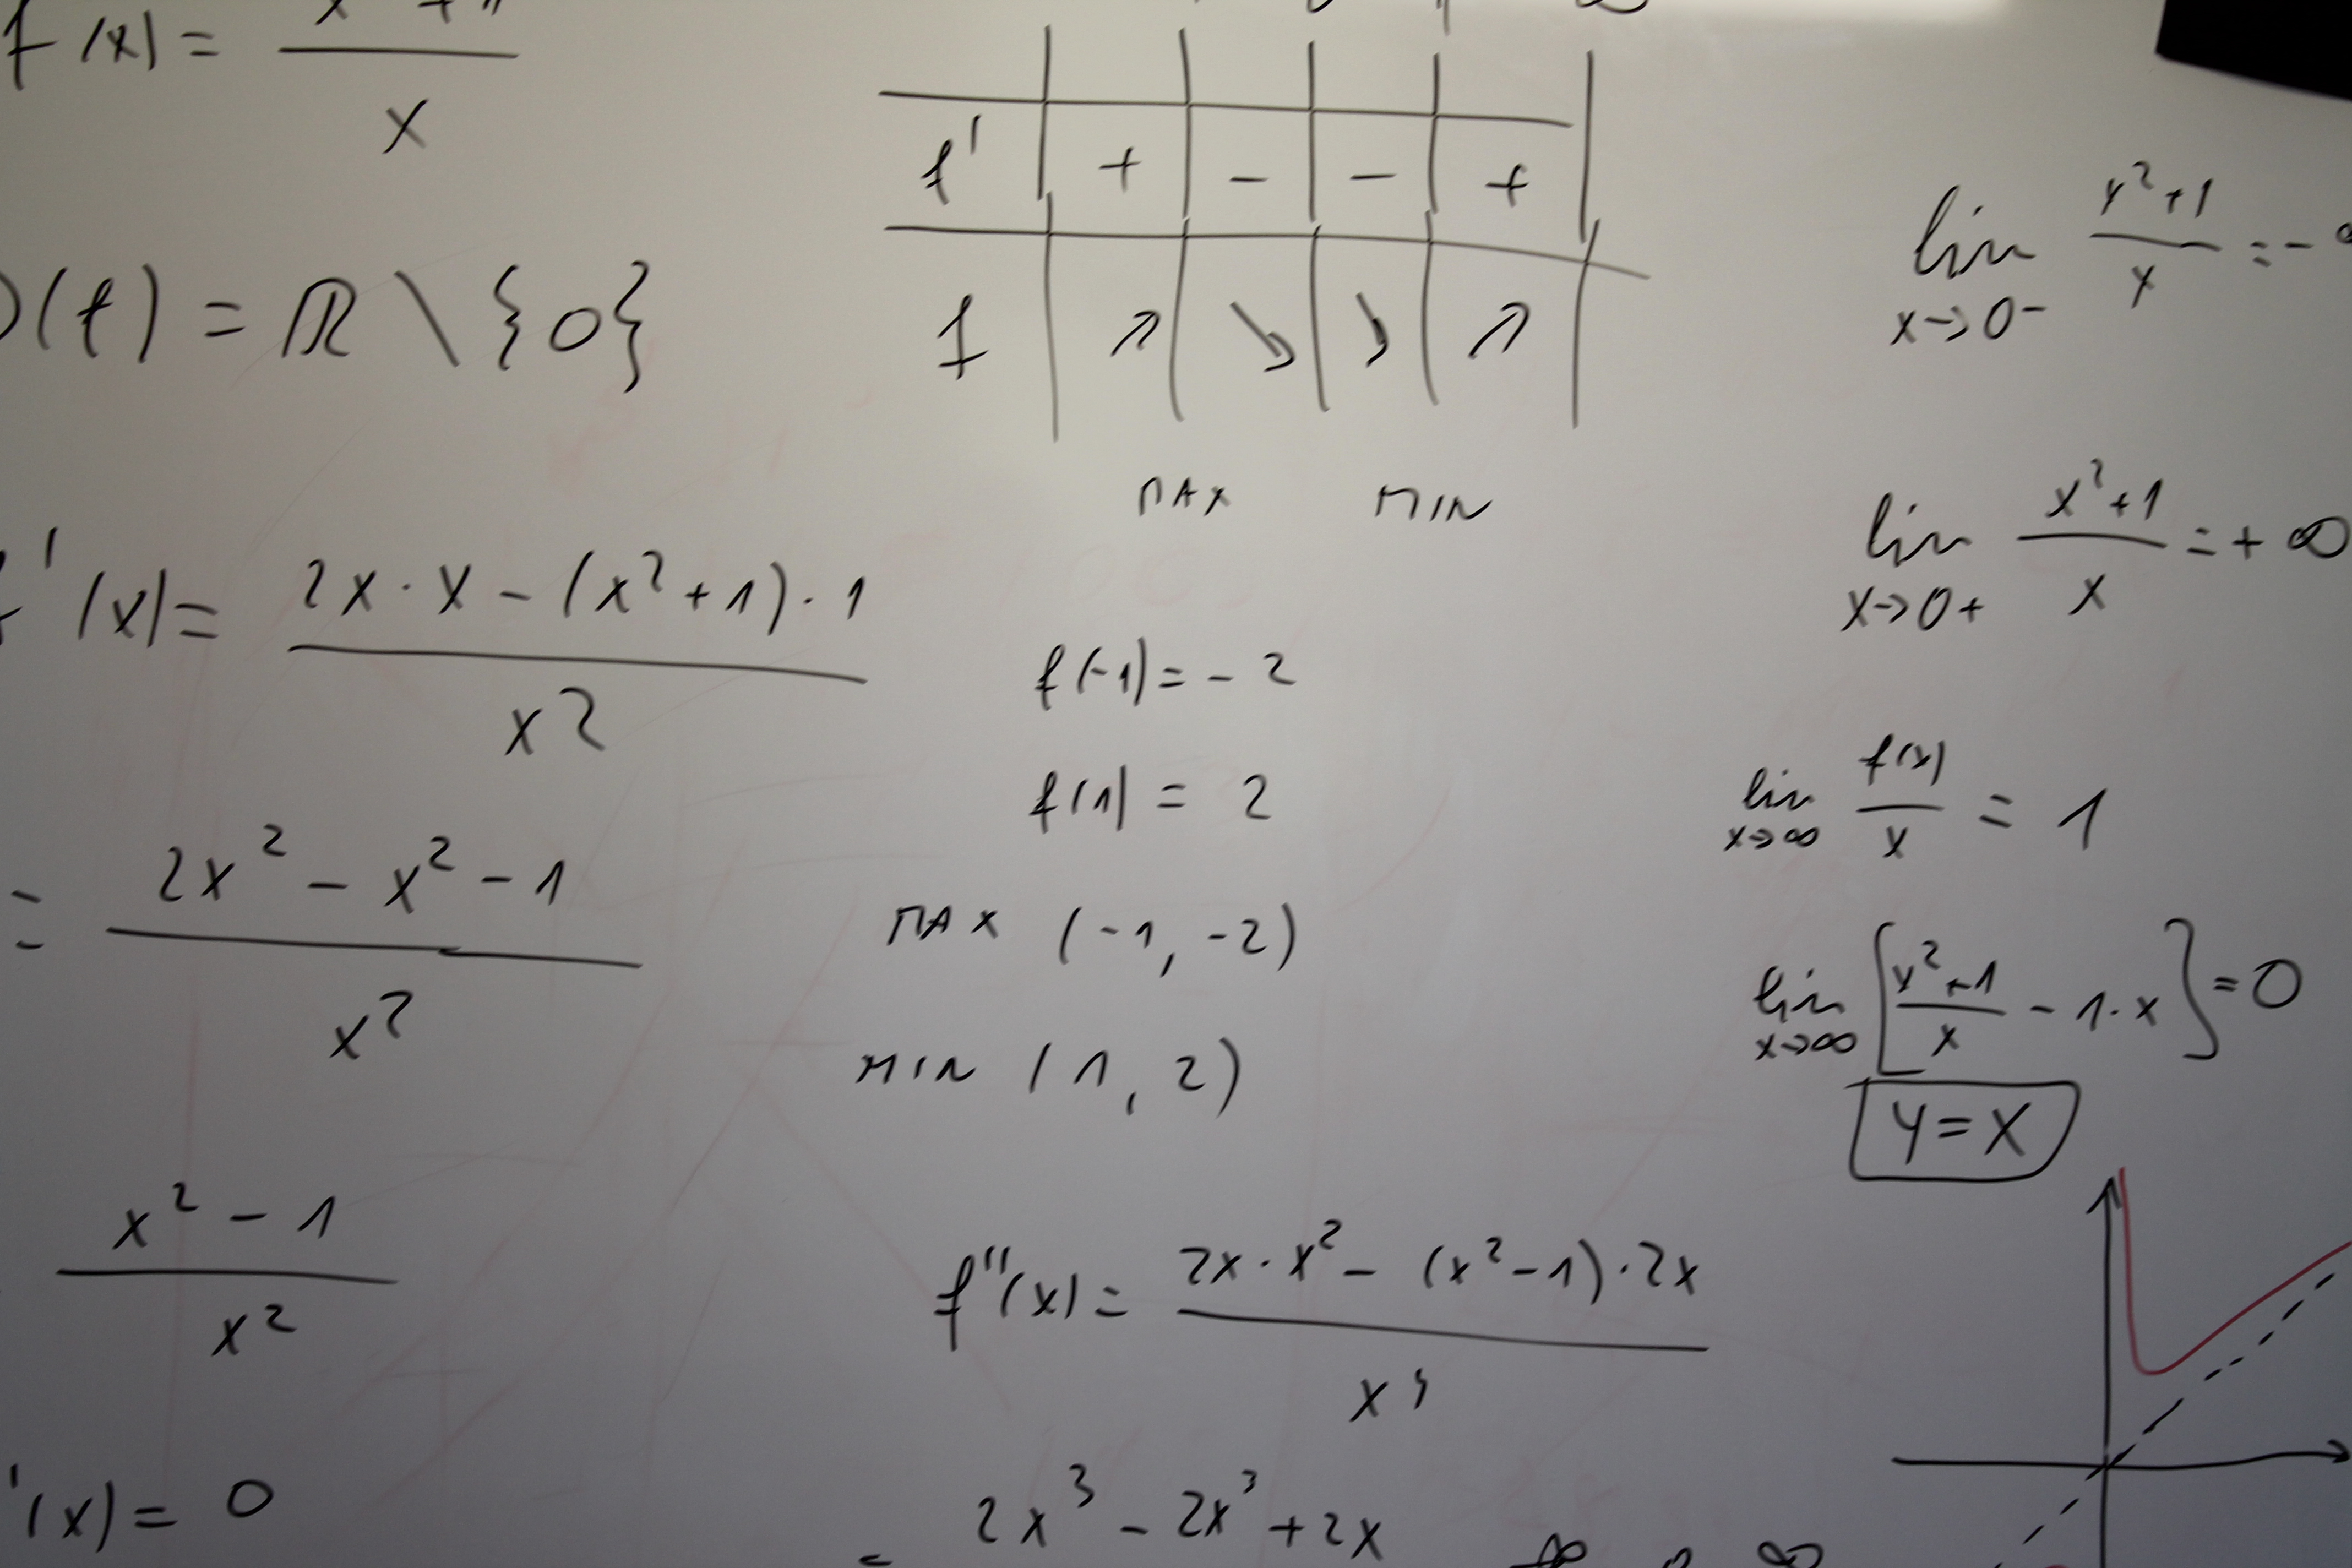 f(x) = x +1 / x
D(f) = ℝ \ {0}
f'(x) = 2x · x - (x²+1) · 1 / x²
= 2x² - x² - 1 / x²
x² - 1 / x²
'(x) = 0
f' + - - +
f ↗ ↘ ↘ ↗
MAX MIN
f(-1) = -2
f(1) = 2
MAX (-1, -2)
MIN (1, 2)
f''(x) = 2x · x² - (x²-1) · 2x / x⁴
= 2x³ - 2x³ + 2x
lim x→0- x²+1 / x = -∞
lim x→0+ x²+1 / x = +∞
lim x→∞ f(x) / x = 1
lim x→∞ [x²+1 / x - 1·x] = 0
y = x